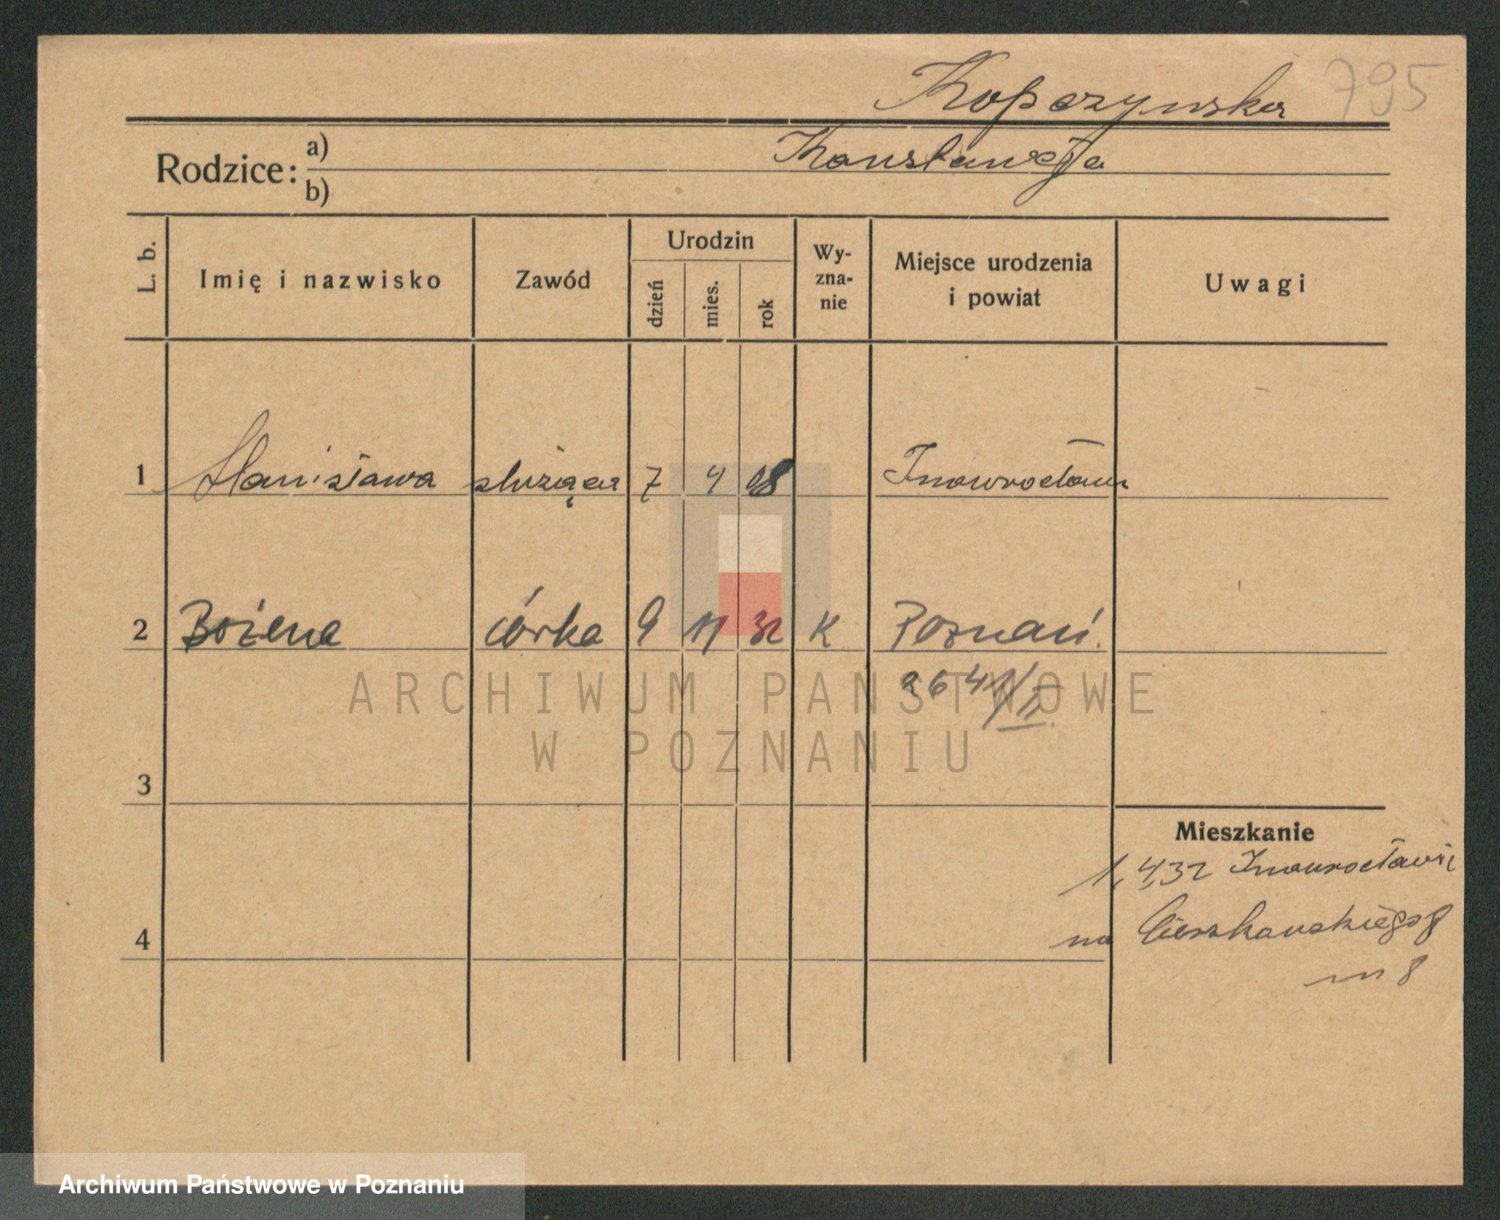 Kopczynska 795
Konstancja
Rodzice: a)
b)
L. b.
Imię i nazwisko
Zawód
Urodzin
dzień
mies.
rok
Wy-
zna-
nie
Miejsce urodzenia
i powiat
Uwagi
1 Stanisława służąca 7 4 08 Inowrocław
2 Bożena córka 9 11 32 K Poznań.
2641/II
3
4
Mieszkanie
1,4,32 Inowrocławia
na Cieszkowskiego 8
m 8
ARCHIWUM PAŃSTWOWE
W POZNANIU
Archiwum Państwowe w Poznaniu